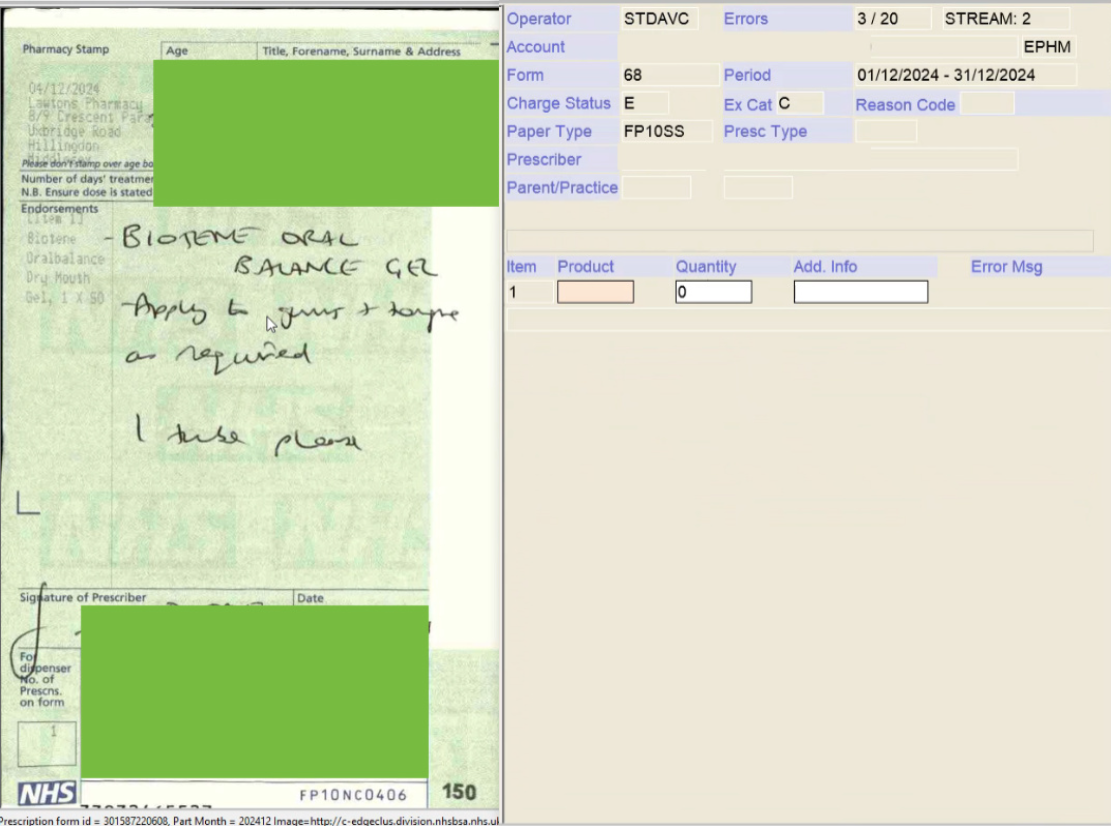 Pharmacy Stamp
Age
Title, Forename, Surname & Address
04/12/2024
Lawtons Pharmacy
8/9 Crescent Para
Uxbridge Road
Hillingdon
Please don't stamp over age bo
Number of days' treatmen
N.B. Ensure dose is stated
Endorsements
[Item 1]
Biotene
Oralbalance
Dry Mouth
Gel, 1 X 50
- BIOTENE ORAL
BALANCE GEL
- Apply to gums + tongue
as required
1 tube please
Signature of Prescriber
Date
For
dispenser
No. of
Prescns.
on form
1
NHS
FP10NC0406
150
Prescription form id = 301587220608, Part Month = 202412 Image=http://c-edgeclus.division.nhsbsa.nhs.uk
Operator STDAVC Errors 3 / 20 STREAM: 2
Account EPHM
Form 68 Period 01/12/2024 - 31/12/2024
Charge Status E Ex Cat C Reason Code
Paper Type FP10SS Presc Type
Prescriber
Parent/Practice
Item Product Quantity Add. Info Error Msg
1 0